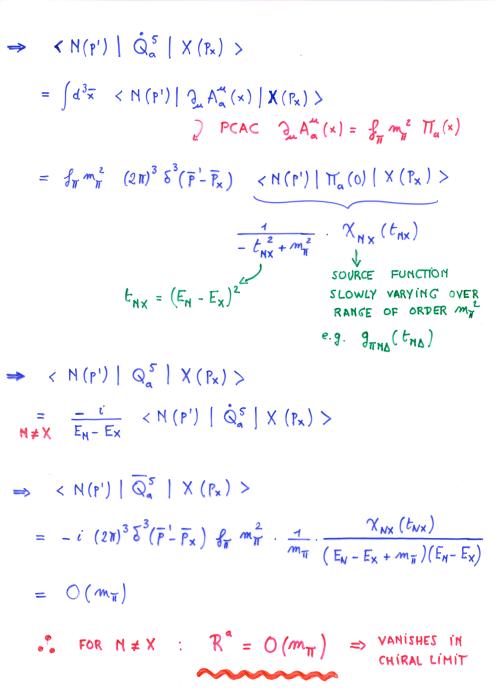 ⇒ < N(p') | Q̇ₐ⁵ | X(pₓ) >
= ∫d³x̄ < N(p') | ∂_μ A_a^μ(x) | X(pₓ) >
PCAC ∂_μ A_a^μ(x) = f_π m_π² π_a(x)
= f_π m_π² (2π)³ δ³(p̄'-p̄ₓ) < N(p') | π_a(0) | X(pₓ) >
1 / (-t_NX² + m_π²) · χ_NX(t_NX)
SOURCE FUNCTION
t_NX = (E_N - E_X)² SLOWLY VARYING OVER
RANGE OF ORDER m_π²
e.g. g_πNΔ(t_NΔ)
⇒ < N(p') | Qₐ⁵ | X(pₓ) >
= -i / (E_N - E_X) < N(p') | Q̇ₐ⁵ | X(pₓ) >
N≠X
⇒ < N(p') | Q̄ₐ⁵ | X(pₓ) >
= -i (2π)³ δ³(p̄'-p̄ₓ) f_π m_π² · 1/m_π · χ_NX(t_NX) / ((E_N - E_X + m_π)(E_N - E_X))
= O(m_π)
∴ FOR N≠X : Rᵃ = O(m_π) ⇒ VANISHES IN
CHIRAL LIMIT